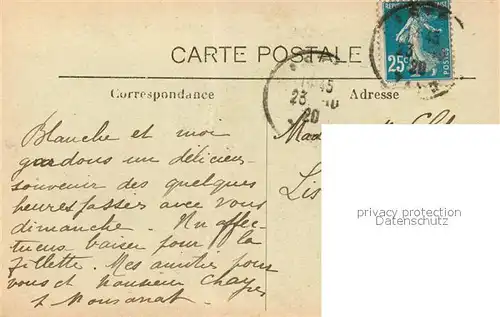 CARTE POSTALE
Correspondance
Adresse
25c
POSTES
15 45
23 10
20
Blanche et moi
gardons un délicieux
souvenir des quelques
heures passées avec vous
dimanche. Un affec-
tueux baiser pour la
fillette. Mes amitiés pour
vous et monsieur
Mad
Lis
privacy protection
Datenschutz